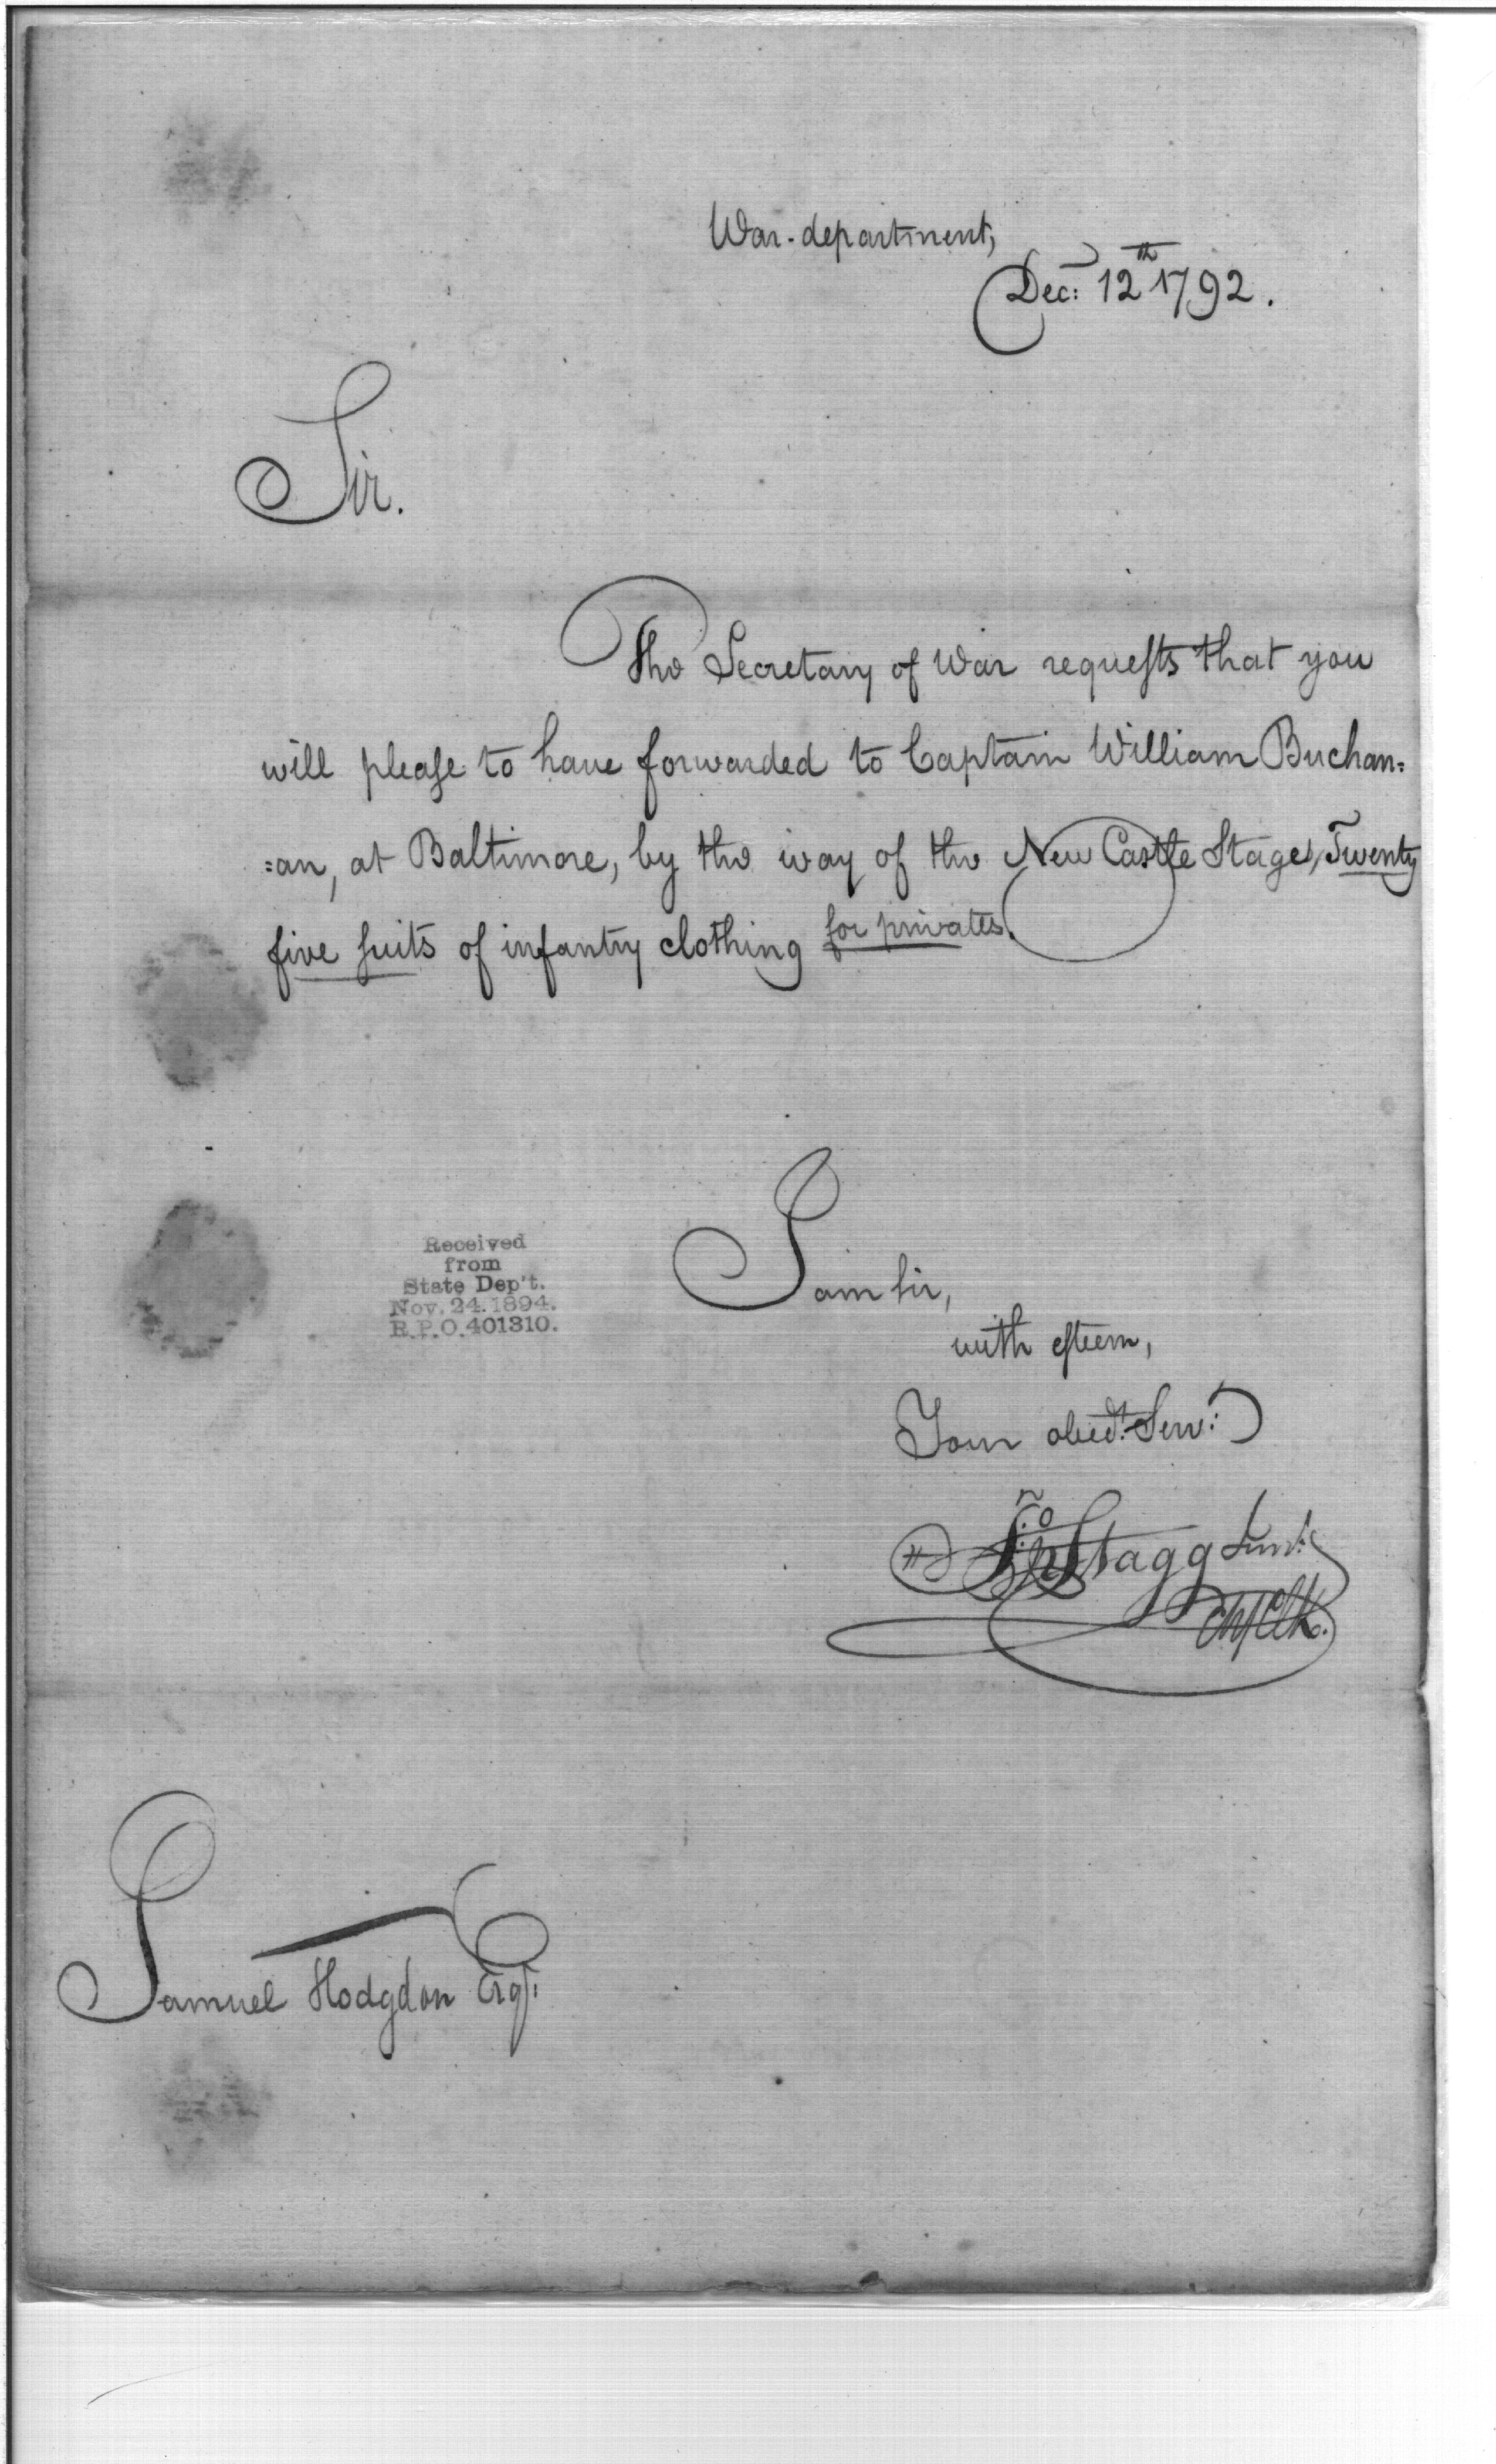 War-department,
Dec: 12th 1792.
Sir.
The Secretary of War requests that you
will please to have forwarded to Captain William Buchan=
=an, at Baltimore, by the way of the New Castle Stage, Twenty
five suits of infantry clothing for privates.
I am sir,
with esteem,
Your obedt. Serv:
Jno Stagg Junr:
Chf Clk.
Received
from
State Dep't.
Nov. 24. 1894.
R.P.O. 401310.
Samuel Hodgdon Esqr: